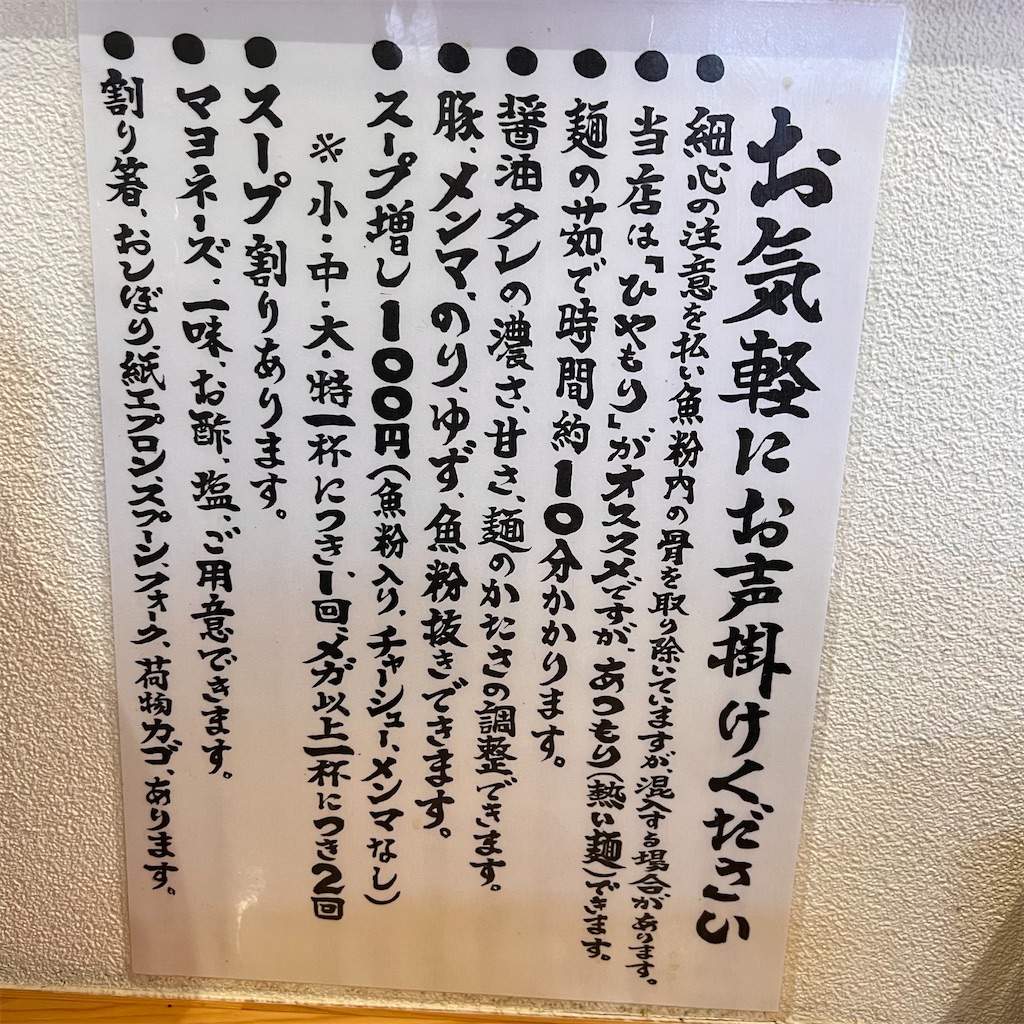 お気軽にお声掛けください
●細心の注意を払い魚粉内の骨を取り除いていますが、混入する場合があります。
●当店は、「ひやもり」がオススメですが、あつもり(熱い麺)できます。
●麺の茹で時間約10分かかります。
●醤油タレの濃さ、甘さ、麺のかたさの調整できます。
●豚、メンマ、のり、ゆず、魚粉抜きできます。
●スープ増し100円(魚粉入り、チャーシュー、メンマなし)
※小・中・大・特一杯につき1回、メガ以上一杯につき2回
●スープ割りあります。
●マヨネーズ、一味、お酢、塩、ご用意できます。
●割り箸、おしぼり、紙エプロン、スプーン、フォーク、荷物カゴ、あります。